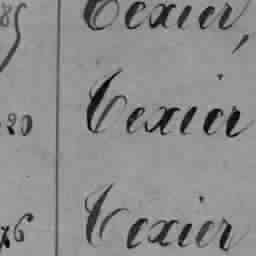 85 Texier,
20 Texier
76 Texier